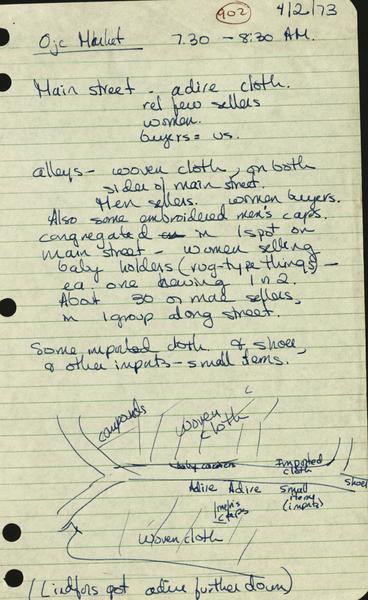 402
4/2/73
Oje Market 7.30 - 8:30 AM.
Main street - adire cloth.
rel few sellers
women.
buyers = us.
alleys - woven cloth, on both
sides of main street.
Men sellers. women buyers.
Also some embroidered men's caps.
congregated in 1 spot on
main street - women selling
baby holders (rug-type things) -
ea one having 1 or 2.
About 30 or more sellers,
in 1 group along street.
Some imported cloth & shoes,
& other imports - small items.
compounds
Woven
cloth
baby carriers
Imported
cloth
shoes
Adire Adire
small
items
(imports)
men's
caps
Woven cloth
(Lindfors got adire further down)